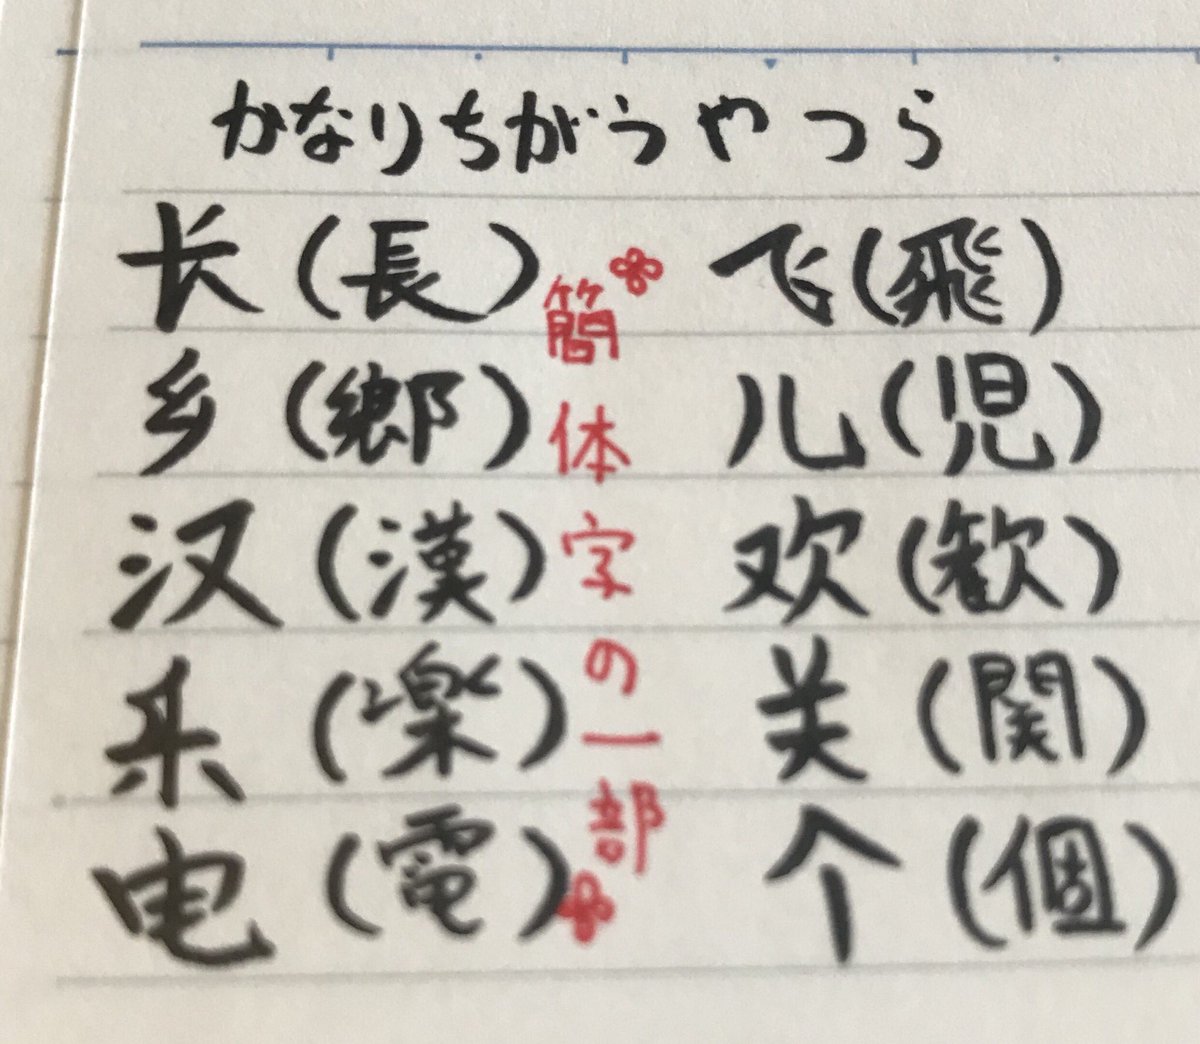 かなりちがうやつら
长(長) 飞(飛)
乡(郷) 儿(児)
汉(漢) 欢(歓)
乐(楽) 关(関)
电(電) 个(個)
簡体字の一部